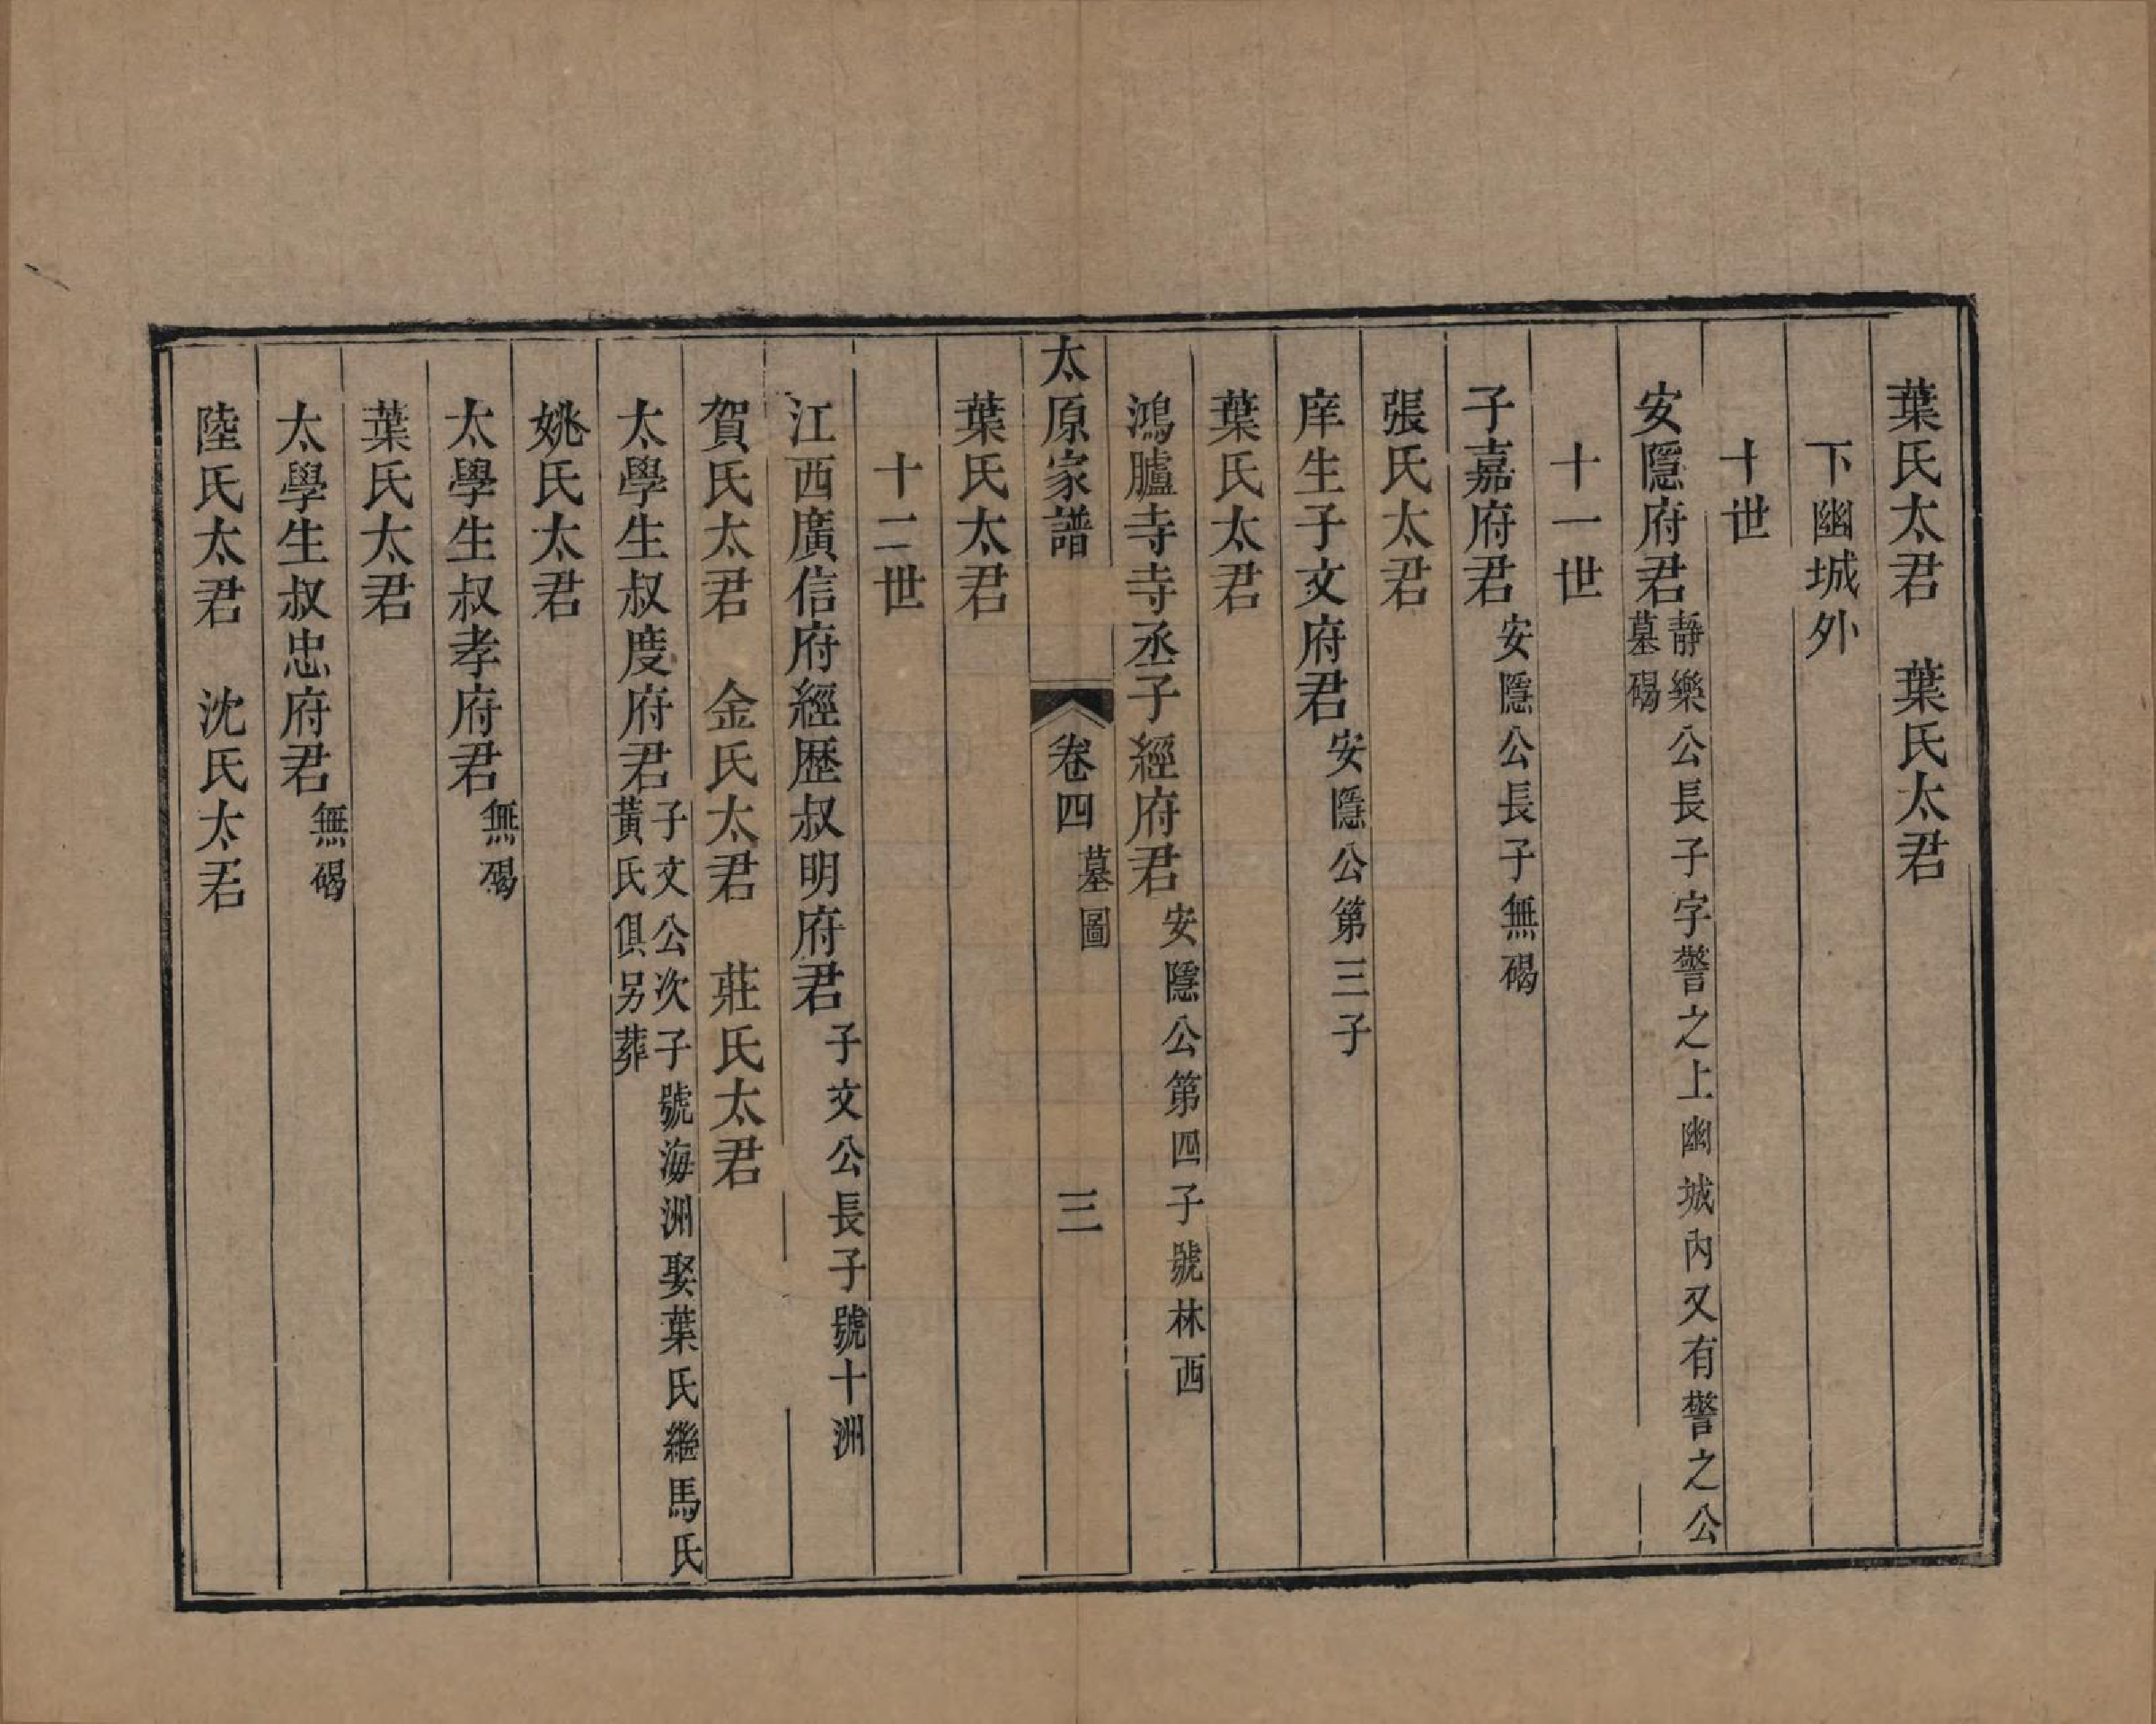 葉氏太君　葉氏太君
下幽城外
十世
安隱府君靜樂公長子字警之上幽城內又有警之公墓碣
十一世
子嘉府君安隱公長子無碣
張氏太君
庠生子文府君安隱公第三子
葉氏太君
鴻臚寺寺丞子經府君安隱公第四子號林西
太原家譜　卷四墓圖　三
葉氏太君
十二世
江西廣信府經歷叔明府君子文公長子號十洲
賀氏太君　金氏太君　莊氏太君
太學生叔度府君子文公次子號海洲娶葉氏繼馬氏黃氏俱另葬
姚氏太君
太學生叔孝府君無碣
葉氏太君
太學生叔忠府君無碣
陸氏太君　沈氏太君